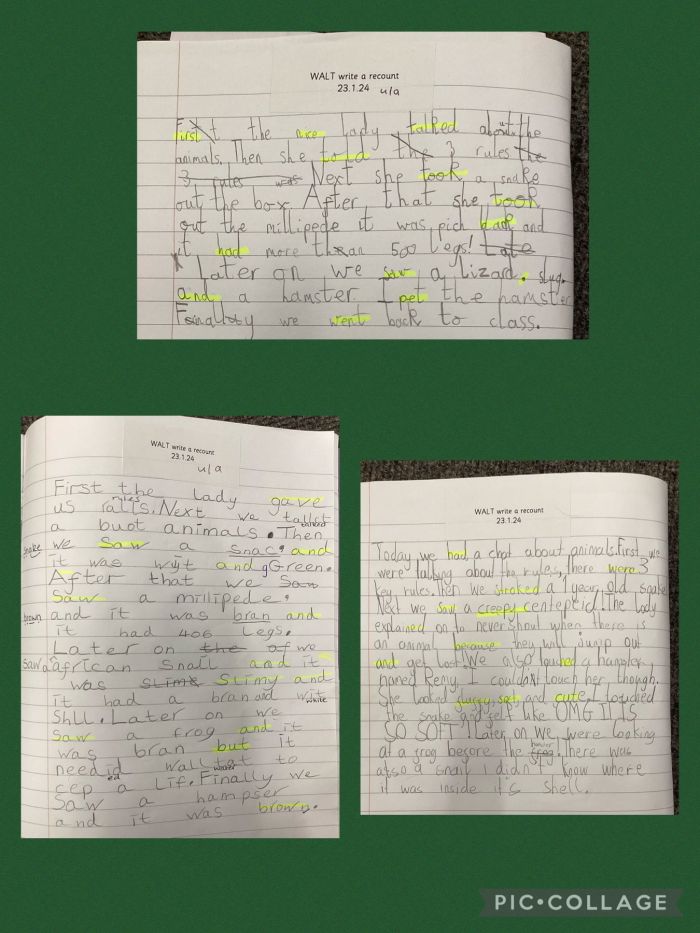 WALT write a recount
23.1.24 u/a
First the nice lady talked about the
animals. Then she told the 3 rules the
3 rules was Next she took a snake
out the box. After that she took
out the millipede it was pich back and
it had more than 500 legs! Late
Later on we saw a lizard, slug.
and a hamster. I pet the hamster
Finally we went back to class.
WALT write a recount
23.1.24
u/a
First the lady gave
us rules. Next we
talked
a buot animals. Then
snake we saw a snac and
it was wit and gGreen.
After that we Saw
Saw a milipede.
brown and it was bran and
it had 406 legs.
Later on the of we
saw a african snall and it
was slime slimy and
it had a bran and wit
white
Shll. Later on we
saw a frog and it
was bran but it
needid wall tat to
water
cep a Lif. Finally we
Saw a hampser
and it was brown.
WALT write a recount
23.1.24
Today we had a chat about animals. First we
were talking about the rules, there were 3
key rules. Then we stroked a 1 year old snake
Next we saw a creepy centepeid. The lady
explained on to never shout when there is
an animal because they will jump out
and get lost. We also touched a hampster
named Remy, I couldn't touch her, though.
She looked furry, soft and cute. I touched
the snake and felt like OMG IT IS
SO SOFT! Later on we were looking
at a frog before the frog. there was
also a snail I didn't know where
it was inside it's shell.
PIC•COLLAGE